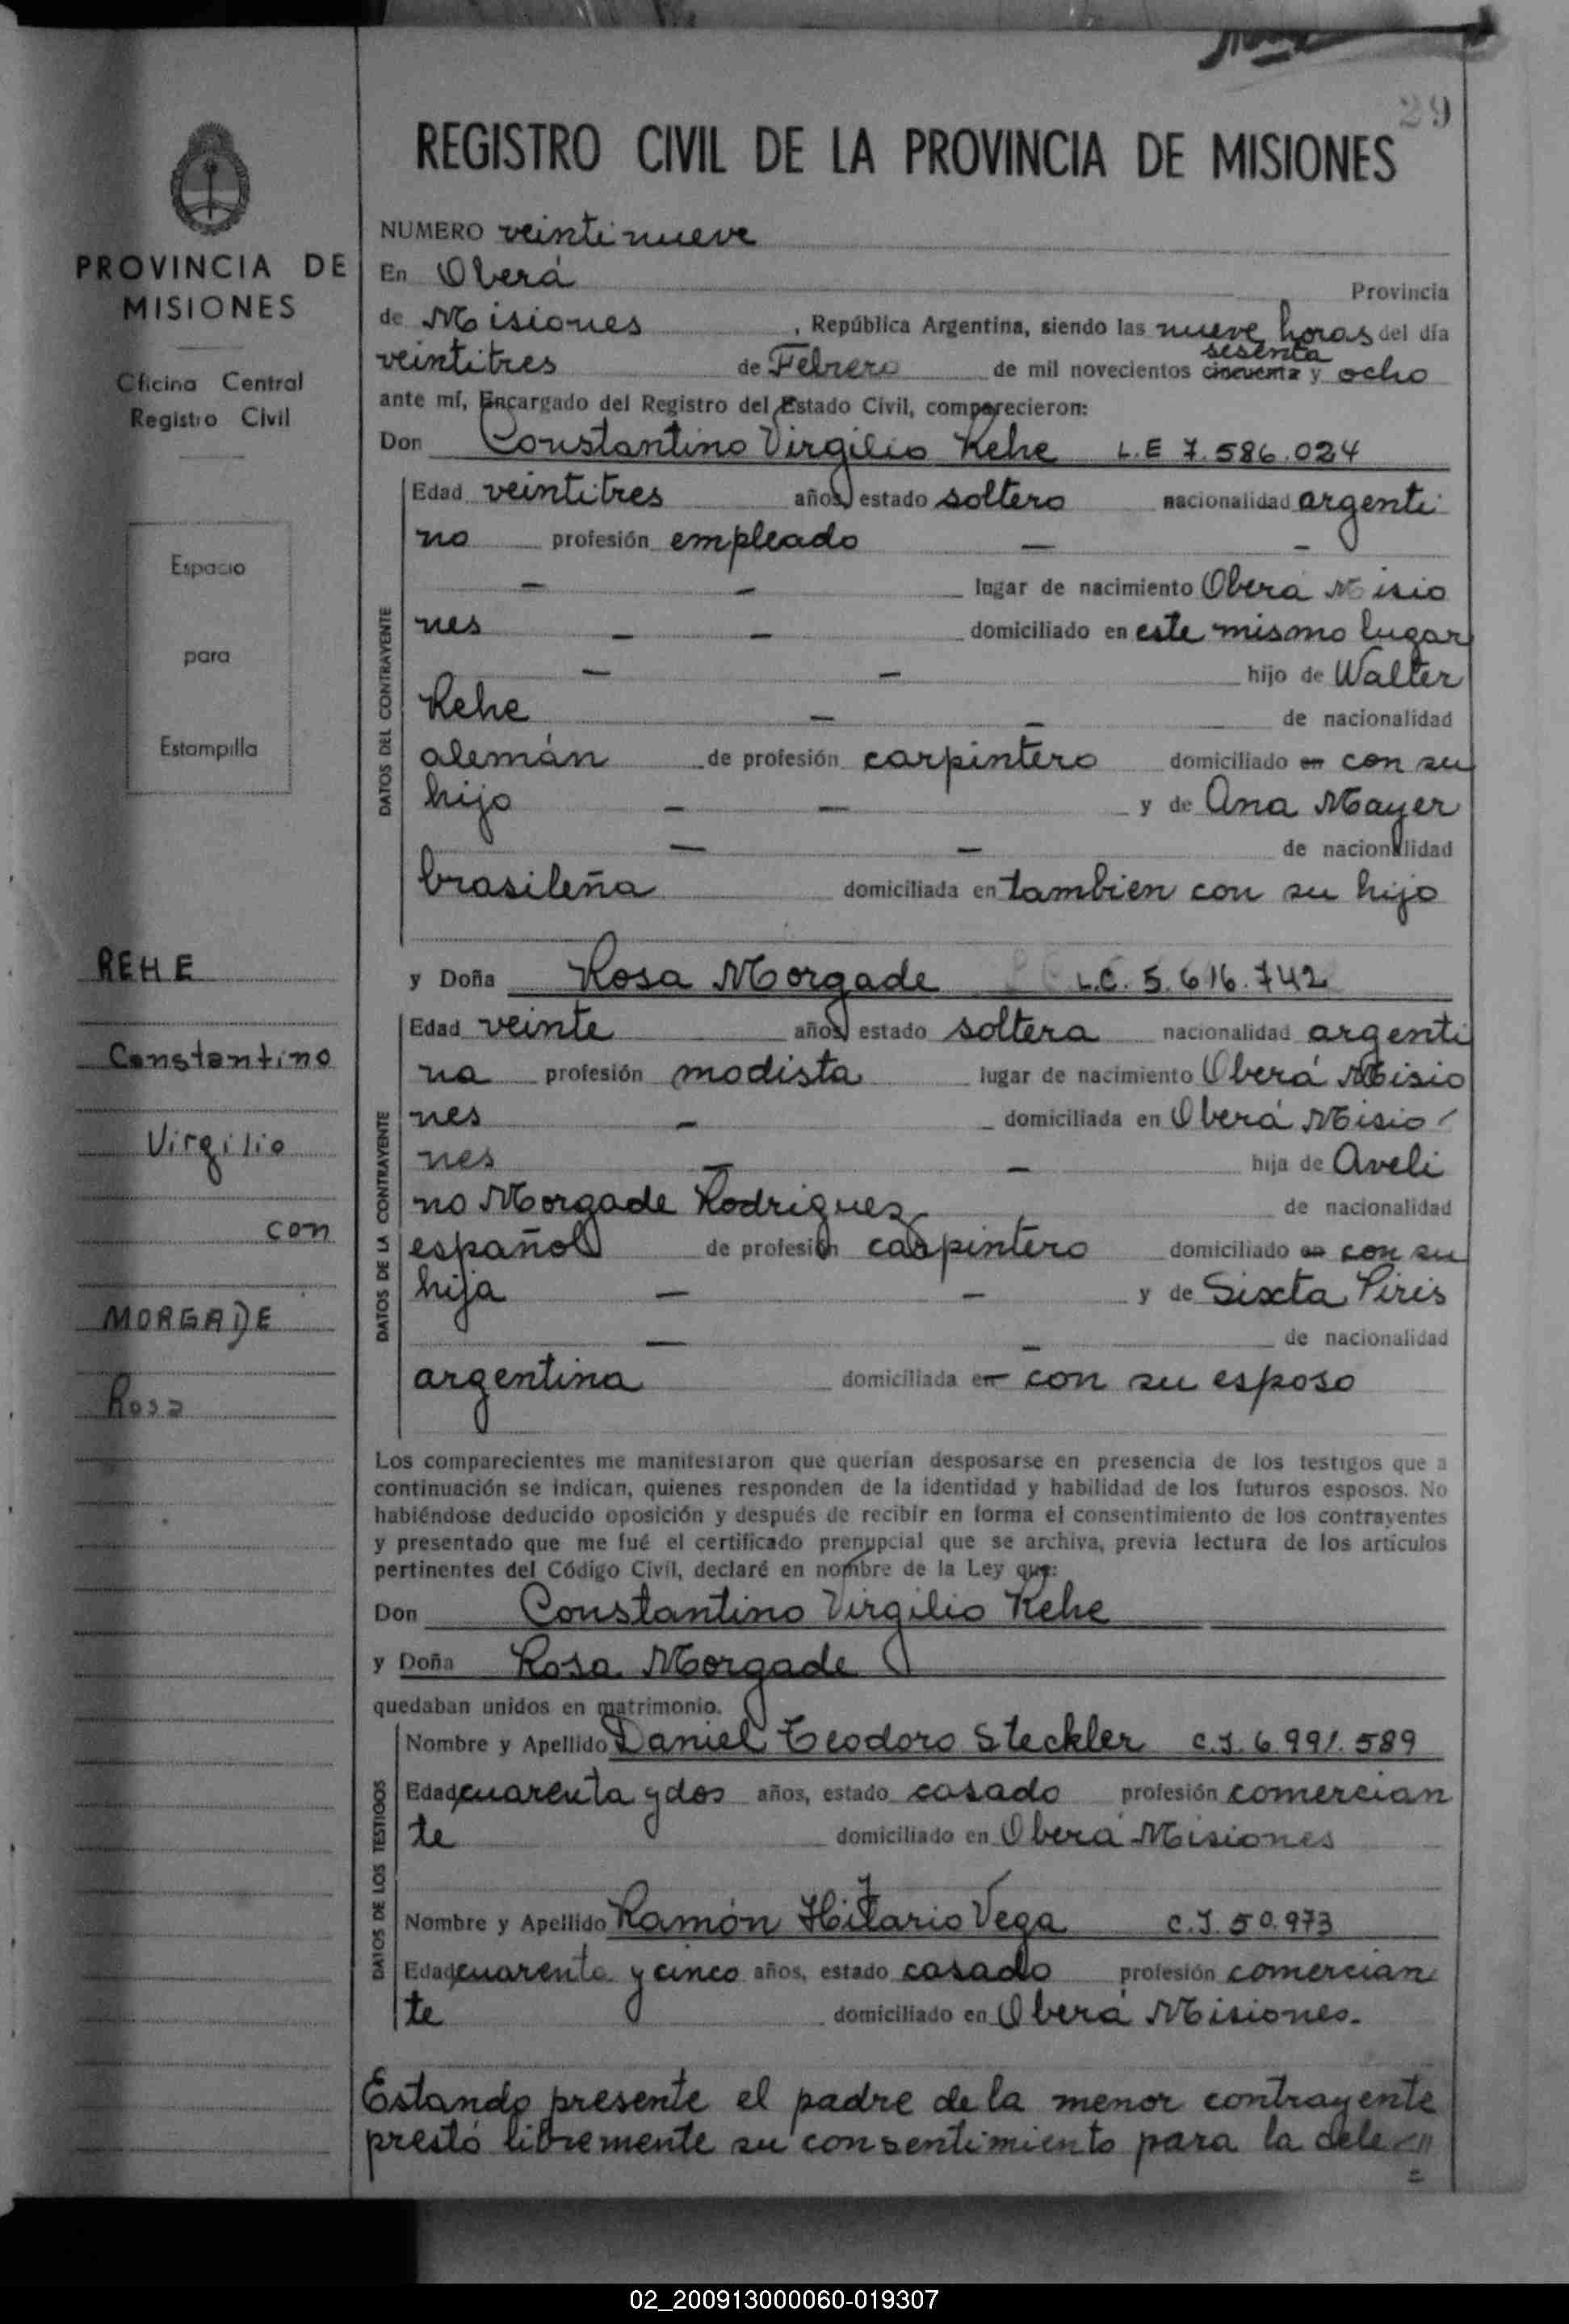 29
REGISTRO CIVIL DE LA PROVINCIA DE MISIONES
PROVINCIA DE
MISIONES
Oficina Central
Registro Civil
Espacio
para
Estampilla
REHE
Constantino
Virgilio
con
MORGADE
Rosa
NUMERO veintinueve
En Oberá Provincia
de Misiones, República Argentina, siendo las nueve horas del día
sesenta
veintitres de Febrero de mil novecientos cincuenta y ocho
ante mí, Encargado del Registro del Estado Civil, comparecieron:
Don Constantino Virgilio Rehe L.E 7.586.024
DATOS DEL CONTRAYENTE
Edad veintitres años, estado soltero nacionalidad argenti
no profesión empleado — —
— — lugar de nacimiento Oberá Misio
nes — — domiciliado en este mismo lugar
— — hijo de Walter
Rehe — — de nacionalidad
alemán de profesión carpintero domiciliado en con su
hijo — — y de Ana Mayer
— — de nacionalidad
brasileña domiciliada en tambien con su hijo
y Doña Rosa Morgade L.C. 5.616.742
DATOS DE LA CONTRAYENTE
Edad veinte años, estado soltera nacionalidad argenti
na profesión modista lugar de nacimiento Oberá Misio
nes — domiciliada en Oberá Misio
nes — — hija de Aveli
no Morgade Rodriguez de nacionalidad
español de profesión carpintero domiciliado en con su
hija — — y de Sixta Piris
— — de nacionalidad
argentina domiciliada en con su esposo
Los comparecientes me manifestaron que querían desposarse en presencia de los testigos que a
continuación se indican, quienes responden de la identidad y habilidad de los futuros esposos. No
habiéndose deducido oposición y después de recibir en forma el consentimiento de los contrayentes
y presentado que me fué el certificado prenupcial que se archiva, previa lectura de los artículos
pertinentes del Código Civil, declaré en nombre de la Ley que:
Don Constantino Virgilio Rehe
y Doña Rosa Morgade
quedaban unidos en matrimonio.
DATOS DE LOS TESTIGOS
Nombre y Apellido Daniel Teodoro Steckler C.I. 6.991.589
Edad cuarenta y dos años, estado casado profesión comercian
te domiciliado en Oberá Misiones
Nombre y Apellido Ramón Hilario Vega C.I. 50.973
Edad cuarenta y cinco años, estado casado profesión comercian
te domiciliado en Oberá Misiones.
Estando presente el padre de la menor contrayente
prestó libremente su consentimiento para la cele
02_200913000060-019307